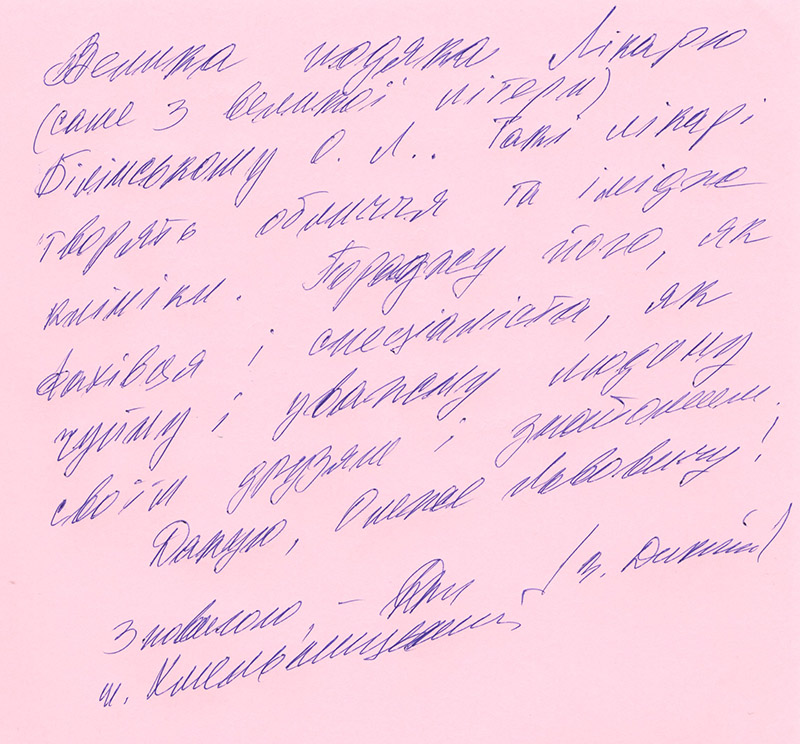 Велика подяка Лікарю
(саме з великої літери)
Білінському О. Л.. Такі лікарі
творять обличчя та імідж
клініки. Пораджу його, як
фахівця і спеціаліста, як
чуйну і уважну людину
своїм друзям і знайомим.
Дякую, Олеже Львовичу!
З повагою, – (В. Дикий)
м. Хмельницький